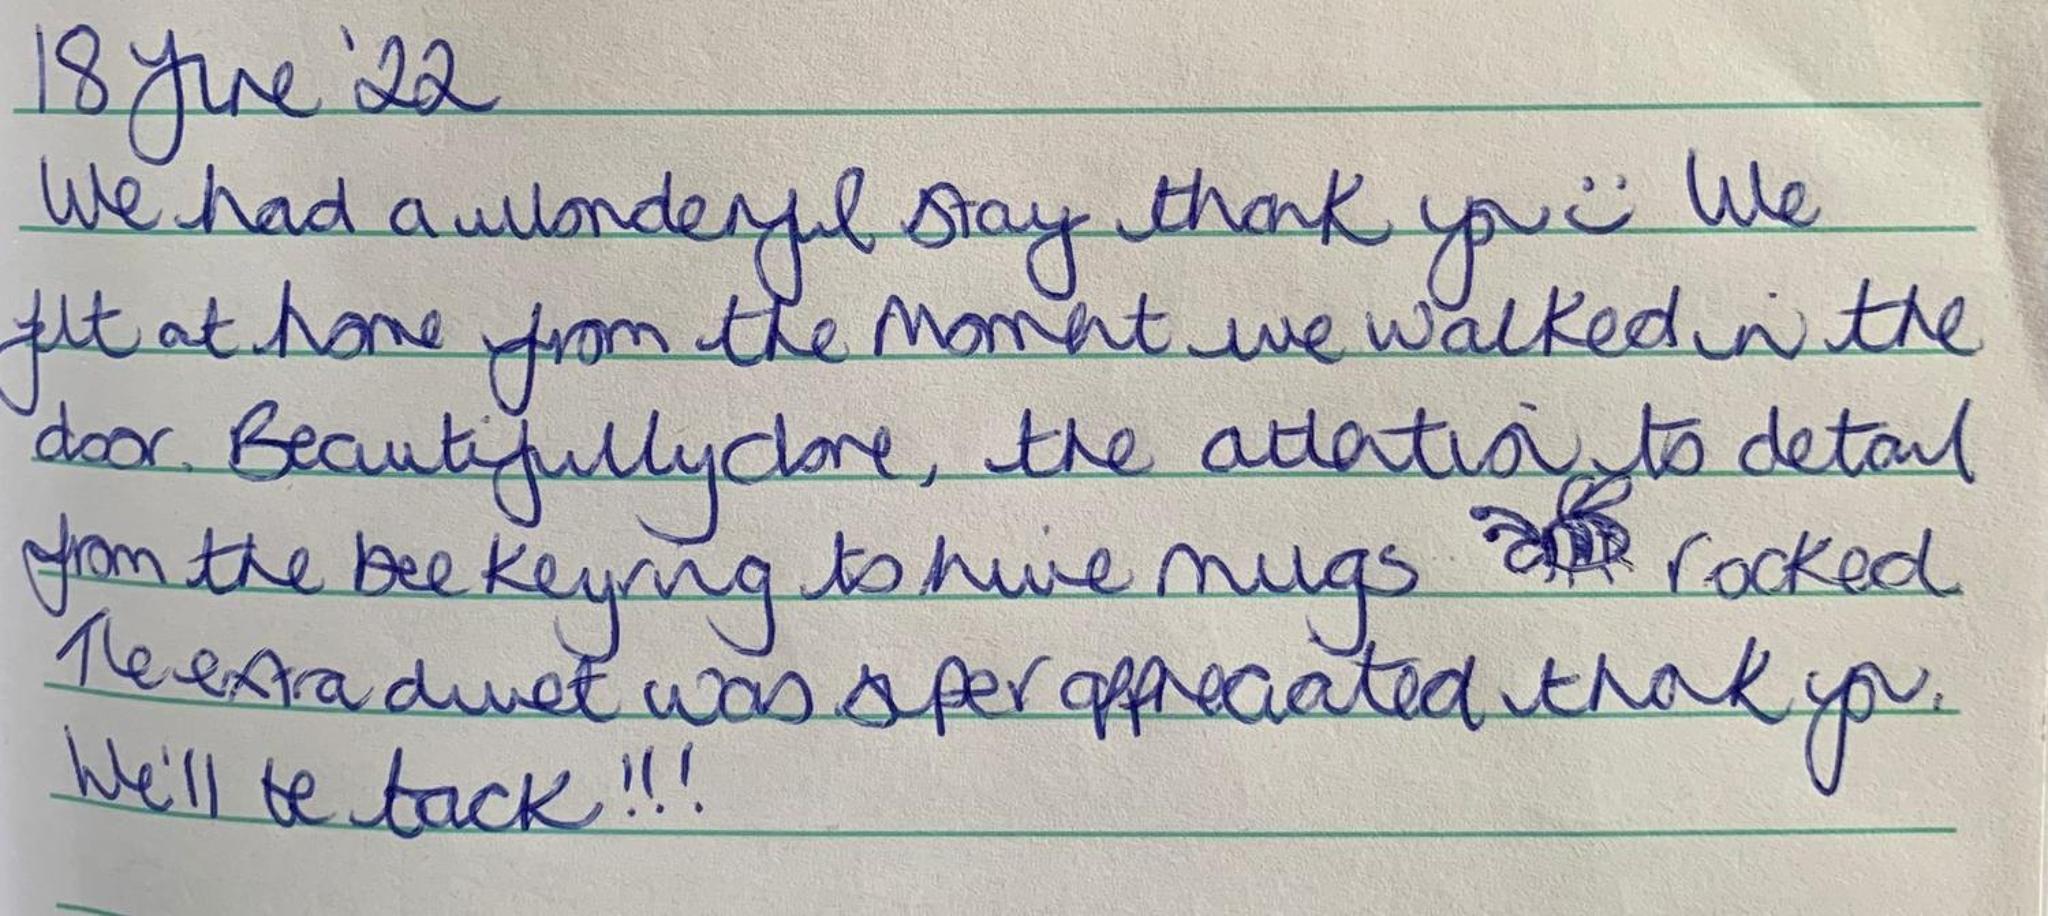 18 June '22
We had a wonderful stay thank you :) We
felt at home from the moment we walked in the
door. Beautifully done, the attention to detail
from the bee keyring to hive mugs rocked
The extra duvet was super appreciated thank you.
We'll be back!!!